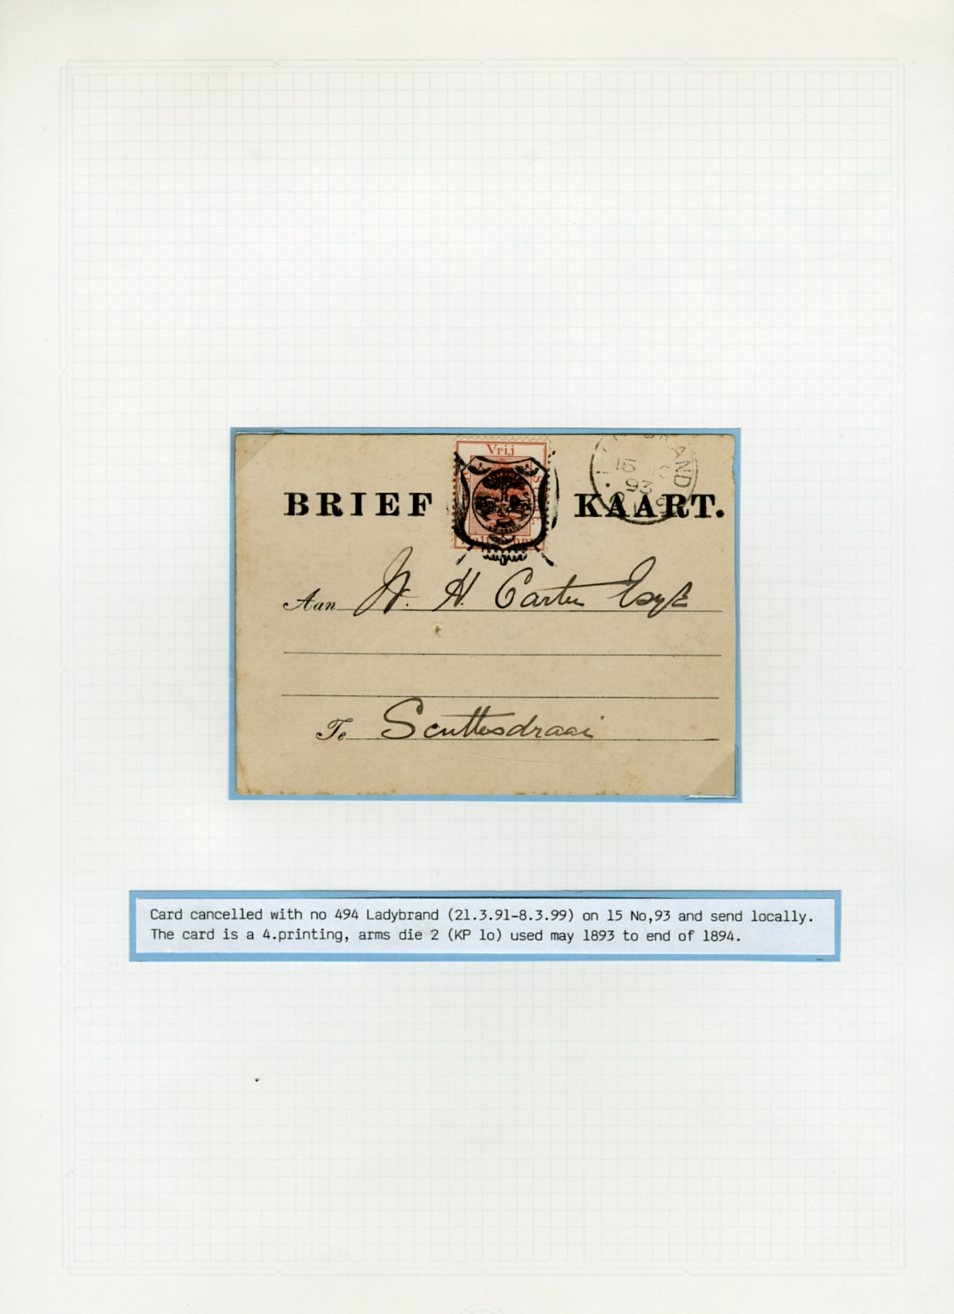 Vrij
BRIEF KAART.
15 NO
93
Aan W. H. Carter Esqre
Te Scuttesdraai
Card cancelled with no 494 Ladybrand (21.3.91-8.3.99) on 15 No,93 and send locally.
The card is a 4.printing, arms die 2 (KP 1o) used may 1893 to end of 1894.